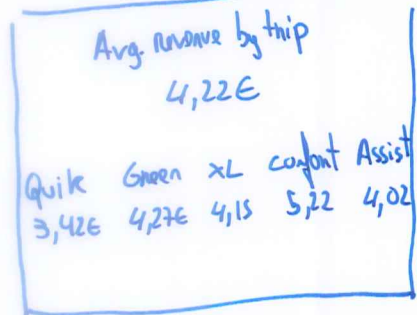 Avg. revenue by trip
4,22€
Quik Green XL confort Assist
3,42€ 4,27€ 4,15 5,22 4,02